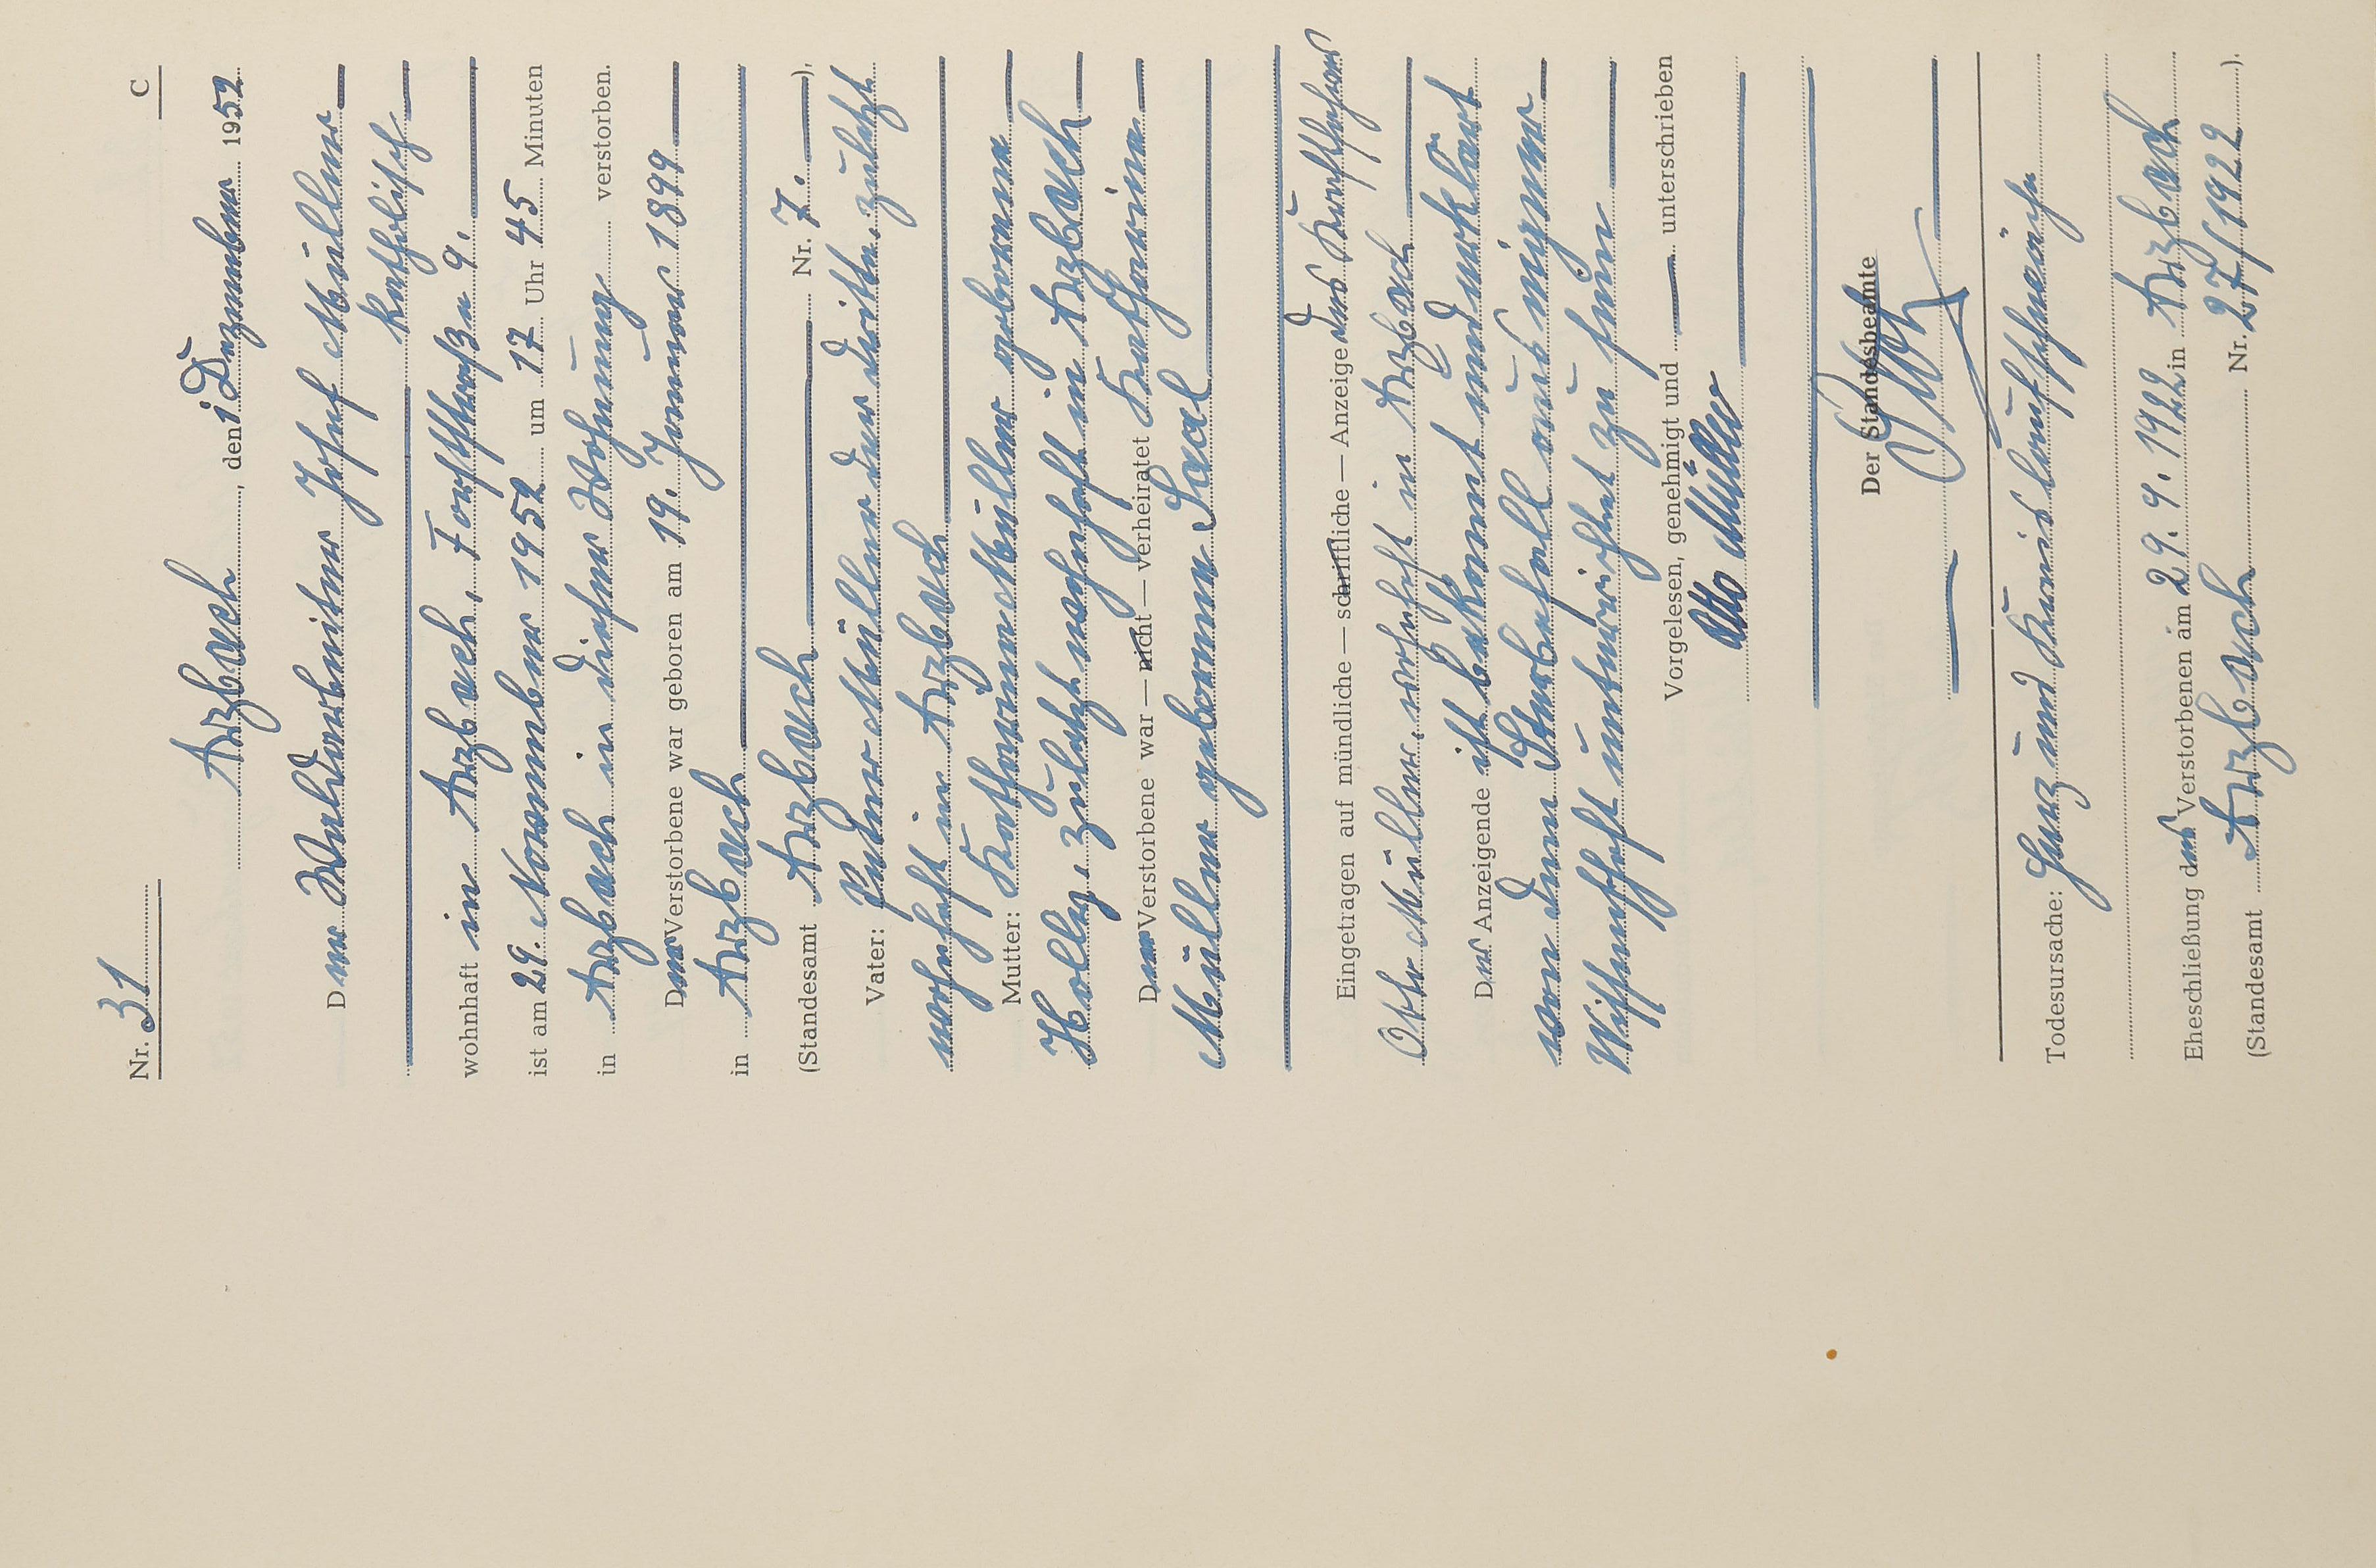 Nr. 31 C
Arzbach, den 1 Dezember 1952
Der Waldarbeiter Josef Müller
katholisch
wohnhaft in Arzbach, Forststraße 9.
ist am 29. November 1952 um 17 Uhr 45 Minuten
in Arzbach in dieser Wohnung verstorben.
Der Verstorbene war geboren am 19. Januar 1899
in Arzbach
(Standesamt Arzbach Nr. 7. ),
Vater: Peter Müller der dritte, zuletzt
wohnhaft in Arzbach
Mutter: Katharina Müller geborene
Holly, zuletzt wohnhaft in Arzbach
Der Verstorbene war — nicht — verheiratet Katharina
Müller geborene Sael
Eingetragen auf mündliche — schriftliche — Anzeige des
Otto Müller, wohnhaft in Arzbach
Der Anzeigende ist bekannt und erklärt
von dem Sterbefall aus eigener
Wissenschaft unterrichtet zu sein
Vorgelesen, genehmigt und unterschrieben
Otto Müller
Der Standesbeamte
Todesursache: Herz und Kreislaufschwäche
Eheschließung des Verstorbenen am 29. 9. 1922 in Arzbach
(Standesamt Arzbach Nr. 27/1922 ).